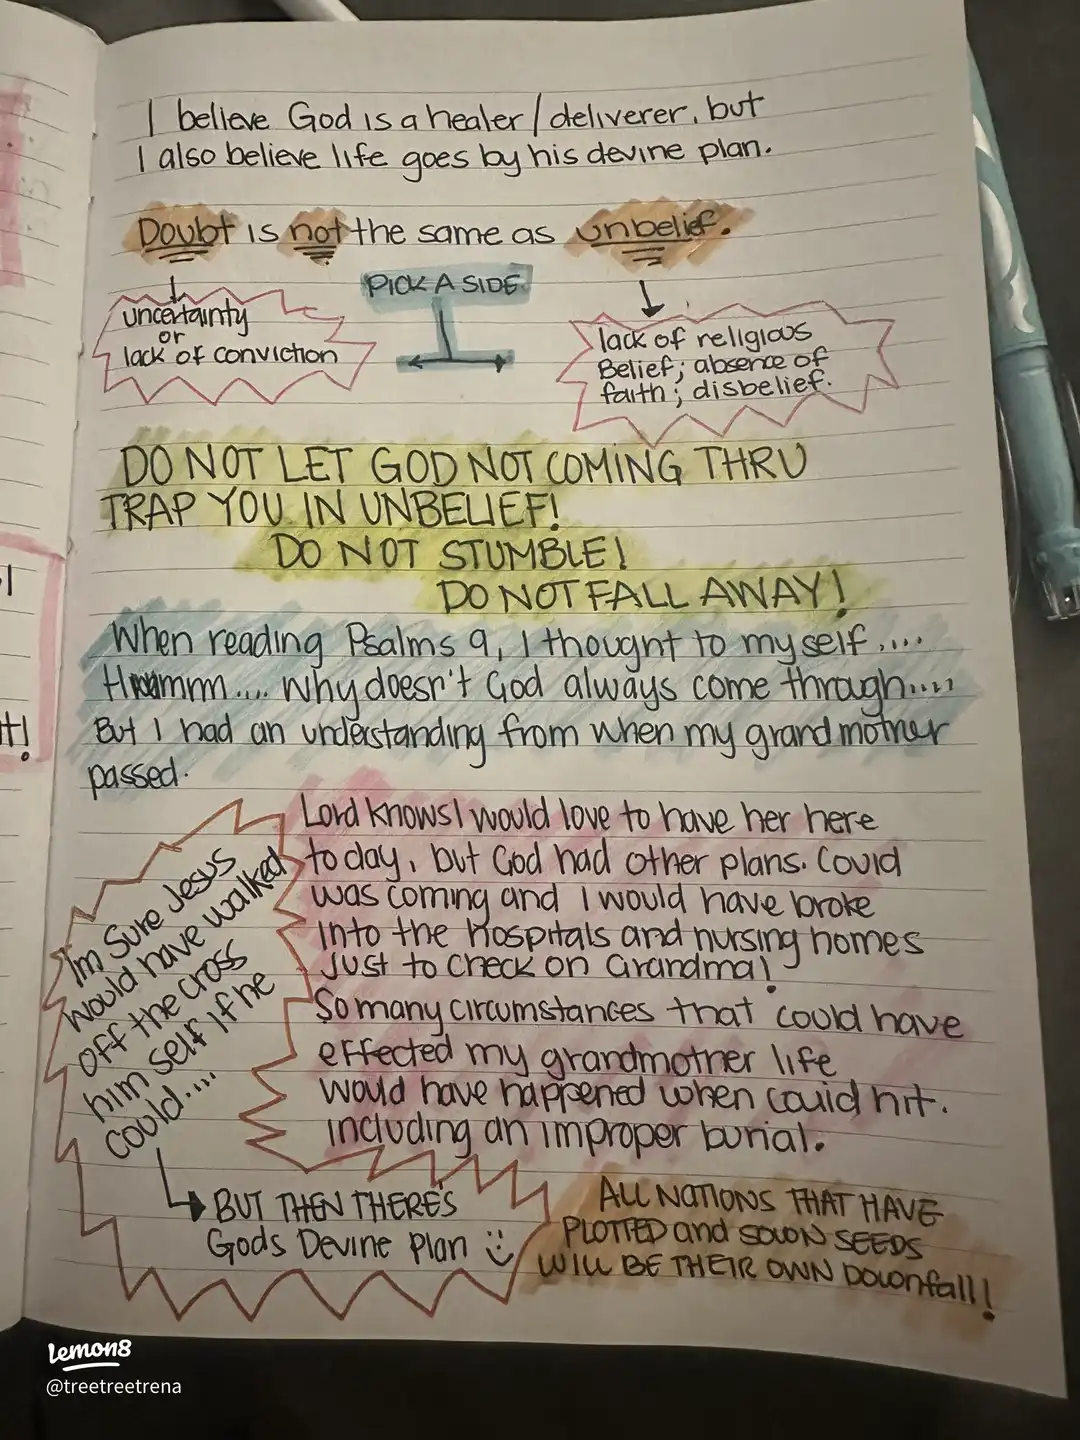 I believe God is a healer/deliverer, but
I also believe life goes by his devine plan.
Doubt is not the same as unbelief.
PICK A SIDE
uncertainty
or
lack of conviction
lack of religious
Belief; absence of
faith; disbelief.
DO NOT LET GOD NOT COMING THRU
TRAP YOU IN UNBELIEF!
DO NOT STUMBLE!
DO NOT FALL AWAY!
When reading Psalms 9, I thought to myself....
Hmmm.... Why doesn't God always come through.....
But I had an understanding from when my grandmother
passed.
Lord knows I would love to have her here
today, but God had other plans. Covid
was coming and I would have broke
into the hospitals and nursing homes
just to check on Grandma!
So many circumstances that could have
effected my grandmother life
would have happened when covid hit.
Including an improper burial.
I'm sure Jesus
would have walked
off the cross
him self if he
could....
BUT THEN THERE'S
Gods Devine Plan
ALL NATIONS THAT HAVE
PLOTTED and SOWN SEEDS
WILL BE THEIR OWN Downfall!
t!
Lemon8
@treetreetrena